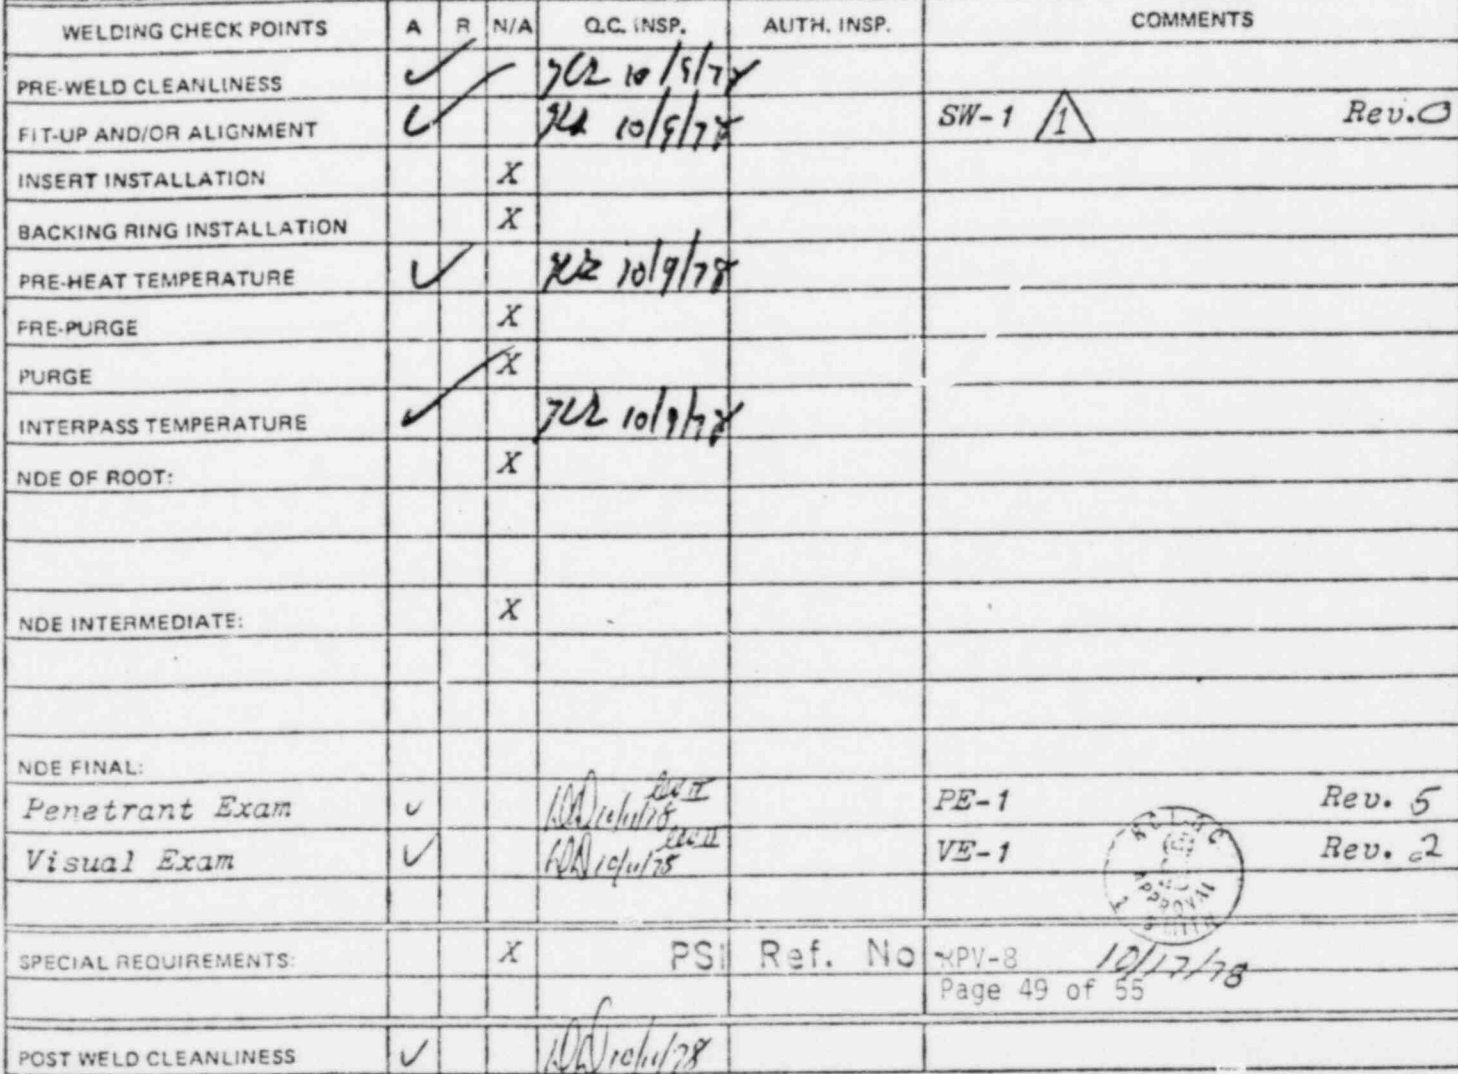 WELDING CHECK POINTS A R N/A Q.C. INSP. AUTH. INSP. COMMENTS
PRE-WELD CLEANLINESS ✓ 10/9/78
FIT-UP AND/OR ALIGNMENT ✓ 10/9/78 SW-1 1 Rev. 0
INSERT INSTALLATION X
BACKING RING INSTALLATION X
PRE-HEAT TEMPERATURE ✓ 10/9/78
PRE-PURGE X
PURGE X
INTERPASS TEMPERATURE ✓ 10/9/78
NDE OF ROOT: X
NDE INTERMEDIATE: X
NDE FINAL:
Penetrant Exam ✓ 10/11/78 PE-1 Rev. 5
Visual Exam ✓ 10/11/78 VE-1 Rev. 2
APPROVAL
SPECIAL REQUIREMENTS: X PSI Ref. No RPV-8 10/17/78
Page 49 of 55
POST WELD CLEANLINESS ✓ 10/11/78